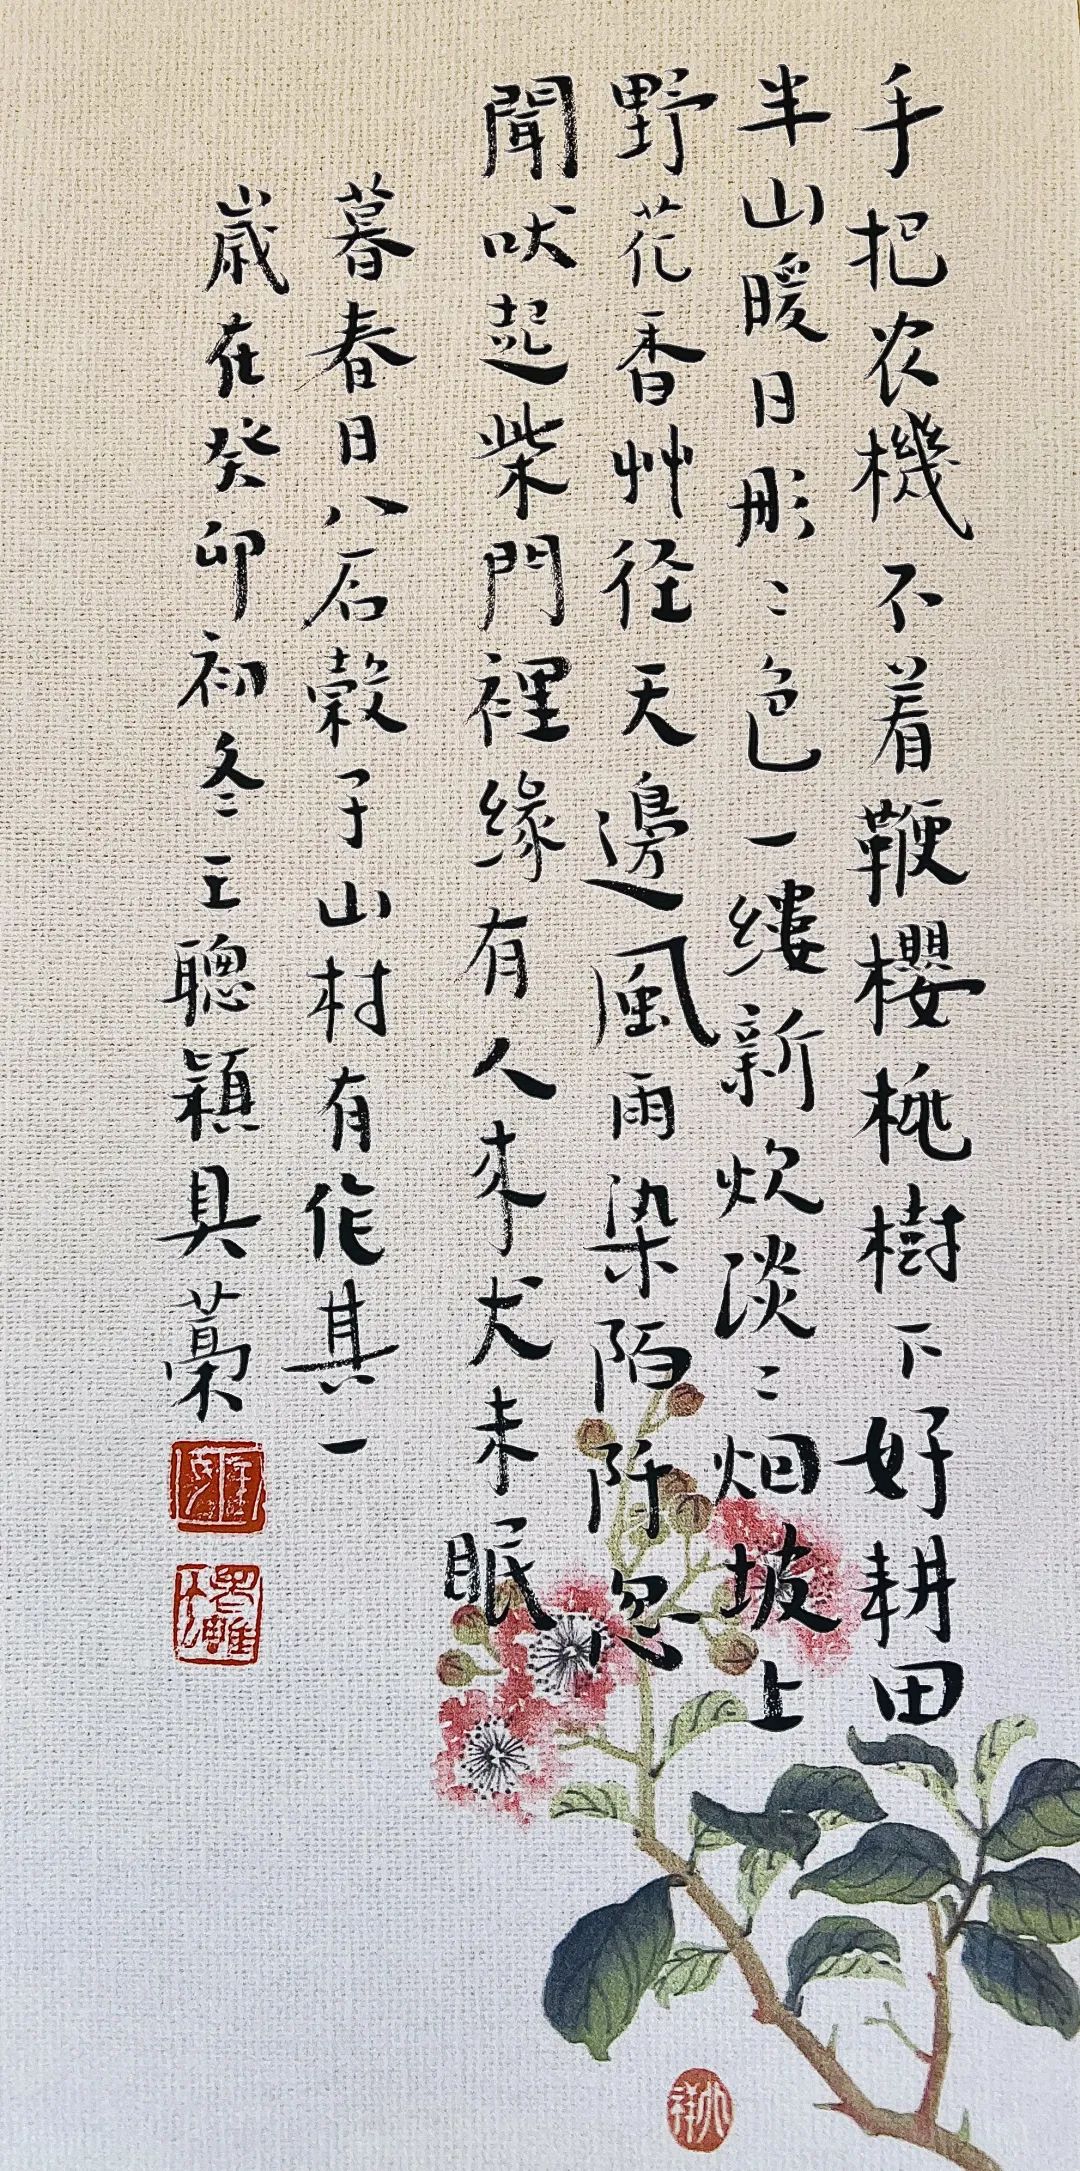 手把农機不着鞭櫻桃樹下好耕田
半山暖日彤〻色一缕新炊淡〻烟坡上
野花香艸径天邊風雨染陌阡忽
聞吠起柴門裡缘有人来犬未眠
暮春日八石穀子山村有作其一
歳在癸卯初冬王聰颖具藁